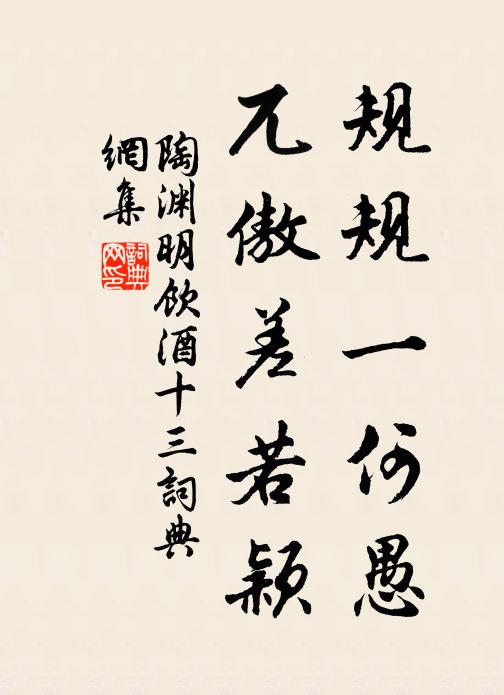 規規一何愚
兀傲差若穎
陶渊明飲酒十三詞典
網集
詞典
网印